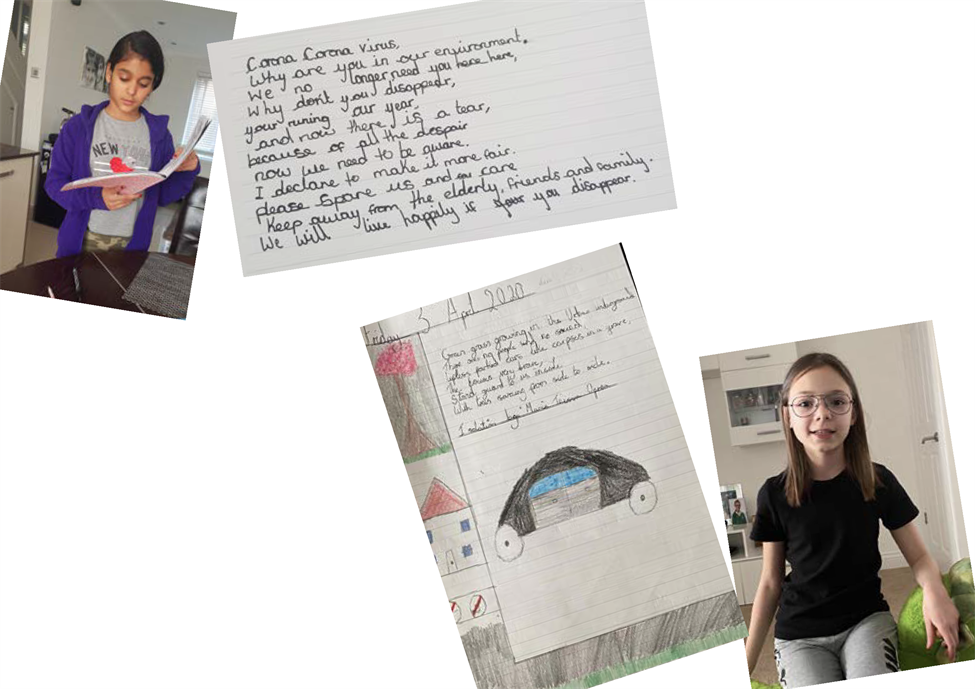 Corona Corona virus,
Why are you in our environment.
We no longer need you here here,
Why don't you disappear,
your runing our year,
and now there is a tear,
because of all the despair
now we need to be aware.
I declare to make it more fair.
please spare us and care
Keep away from the elderly, friends and family.
We will live happily if you disappear.
NEW
Friday 3 April 2020
grass growing in the Urban underground
There are no people no
parked cars like corpses in a grave,
The houses very brave,
Stand guard to us inside,
With from side to side.
Isolation by: Maria